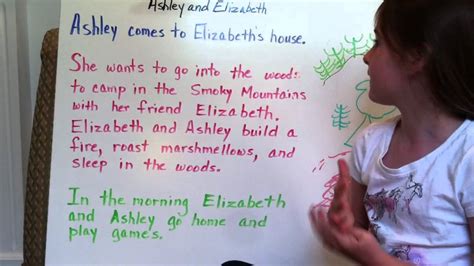 Ashley and Elizabeth
Ashley comes to Elizabeth's house.
She wants to go into the woods
to camp in the Smoky Mountains
with her friend Elizabeth.
Elizabeth and Ashley build a
fire, roast marshmellows, and
sleep in the woods.
In the morning Elizabeth
and Ashley go home and
play games.